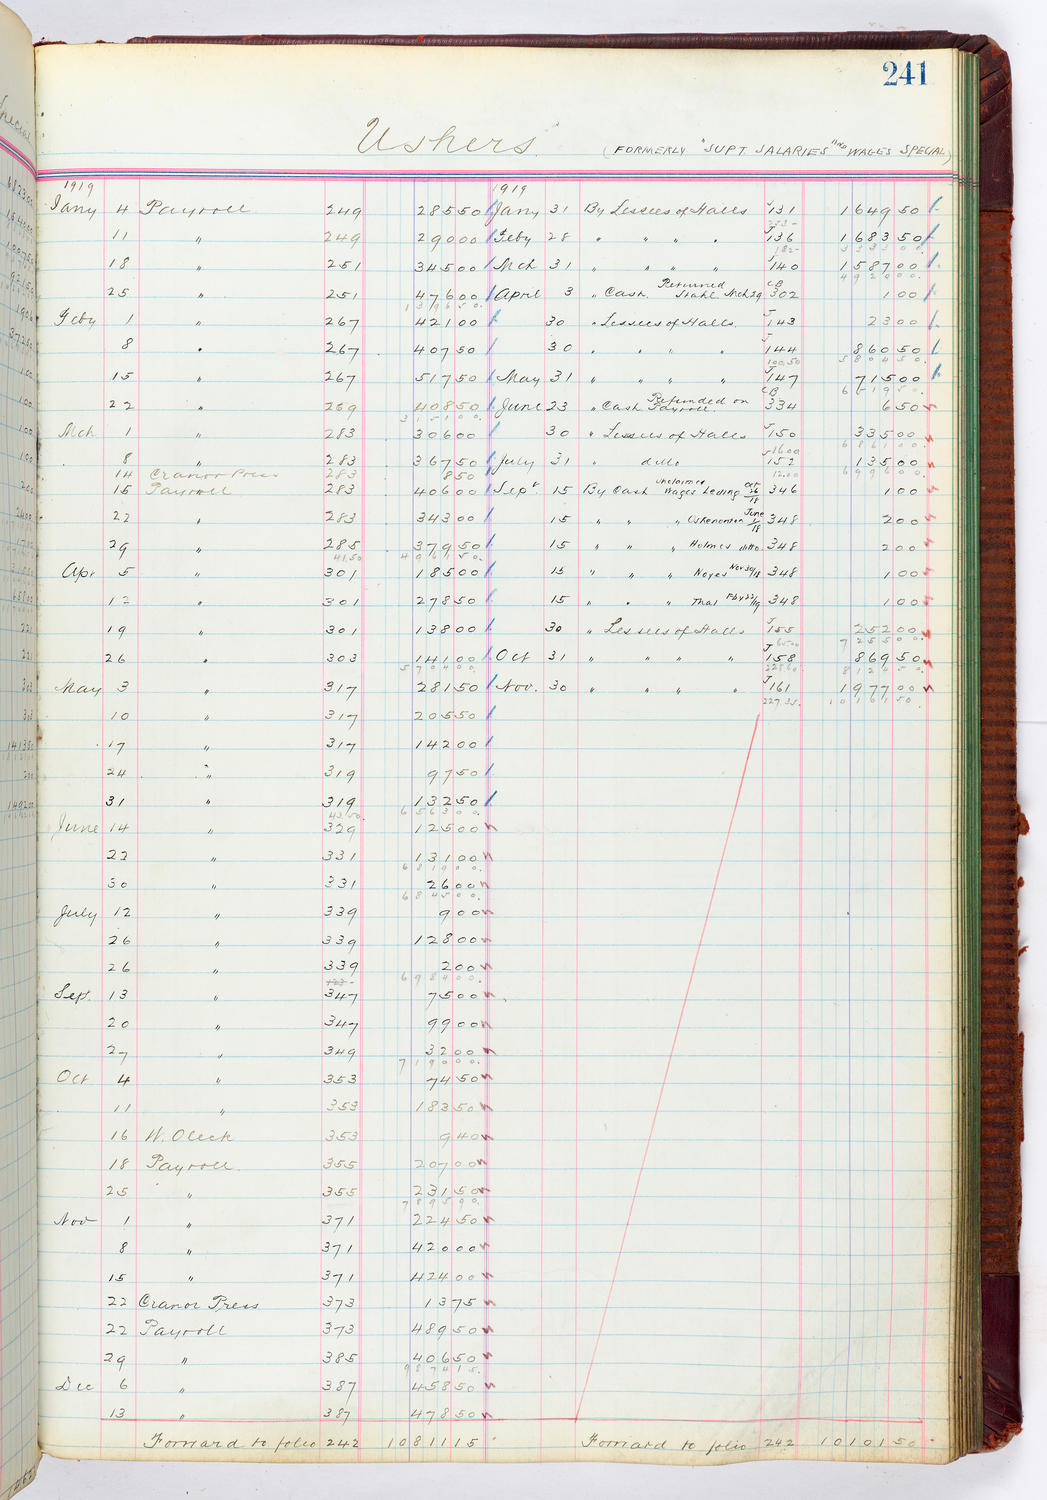 241
Ushers (FORMERLY "SUPT. SALARIES" AND WAGES SPECIAL)
1919 1919
Jany 4 Payroll 249 285 50 Jany 31 By Lessees of Halls J131 1649 50
11 " 249 290 00 Feby 28 " " " " J136 1683 50
18 " 251 345 00 Mch 31 " " " " J140 1587 00
25 " 251 476 00 April 3 " Cash. Returned Stahl Mch 29 CB 302 1 00
Feby 1 " 267 421 00 30 " Lessees of Halls J143 23 00
8 " 267 407 50 30 " " " " J144 860 50
15 " 267 517 50 May 31 " " " " J147 715 00
22 " 269 408 50 June 23 " Cash Refunded on Payroll CB 334 6 50
Mch 1 " 283 306 00 30 " Lessees of Halls J150 335 00
8 " 283 367 50 July 31 " ditto J152 135 00
14 Cranor Press 283 8 50
15 Payroll 283 406 00 Sept 15 By Cash Unclaimed Wages Leding Oct 26/18 346 1 00
22 " 283 343 00 15 " " " June 1/18 348 2 00
29 " 285 379 50 15 " " " Holmes ditto 348 2 00
Apr 5 " 301 185 00 15 " " " Noyes Nov 30/18 348 1 00
12 " 301 278 50 15 " " " Thal Fby 22/19 348 1 00
19 " 301 138 00 30 " Lessees of Halls J155 252 00
26 " 303 141 00 Oct 31 " " " " J158 869 50
May 3 " 317 281 50 Nov. 30 " " " " J161 1977 00
10 " 317 205 50
17 " 317 142 00
24 " 319 97 50
31 " 319 132 50
June 14 " 329 125 00
22 " 331 131 00
30 " 331 26 00
July 12 " 339 9 00
26 " 339 128 00
26 " 339 2 00
Sep. 13 " 347 75 00
20 " 347 99 00
27 " 349 32 00
Oct 4 " 353 74 50
11 " 353 183 50
16 W. Oleck 353 9 40
18 Payroll 355 207 00
25 " 355 231 50
Nov 1 " 371 224 50
8 " 371 420 00
15 " 371 424 00
22 Cranor Press 373 13 75
22 Payroll 373 489 50
29 " 385 406 50
Dec 6 " 387 458 50
13 " 387 478 50
Forward to folio 242 10811 15 Forward to folio 242 10101 50